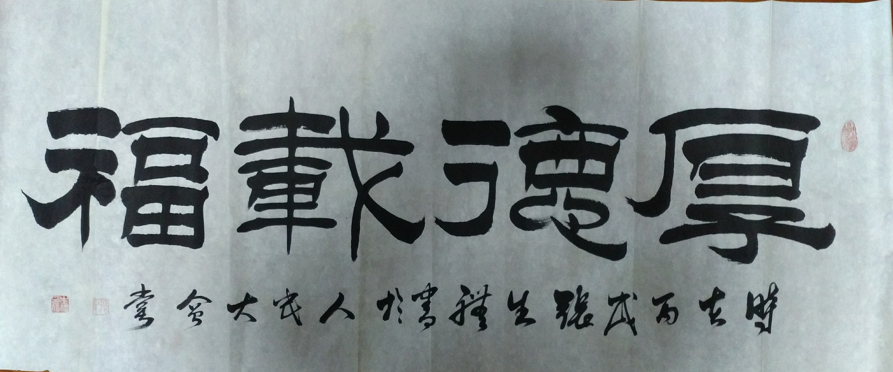 厚德載福
時在丙戌張生禮書於人民大會堂